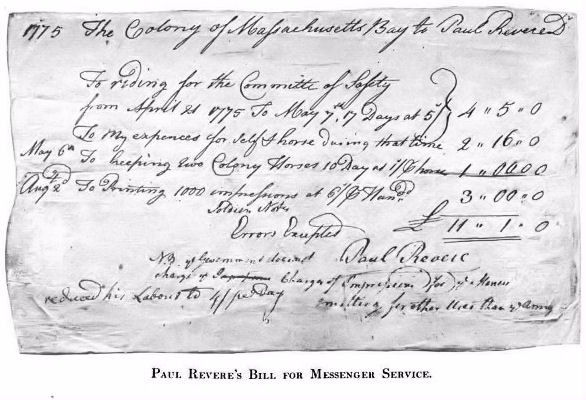 1775 The Colony of Massachusetts Bay to Paul Revere Dr
To riding for the Committe of Safety
from April 21 1775 To May 7th, 17 Days at 5/ 4 " 5 " 0
To my expences for self & horse during that time 2 " 16 " 0
May 6th To keeping two Colony Horses 10 Day at 1/ 1 " 00 " 0
Augt 2d To Printing 1000 impressions at 6/ Hund. 3 " 00 " 0
Soldiers Notes £ 11 " 1 " 0
Errors Excepted
Paul Revere
N.B. ye Government
charge ye Charge of Impressions for ye
reduced his Labour to 4/ per Day
emitting for other Uses than ye Army
PAUL REVERE'S BILL FOR MESSENGER SERVICE.